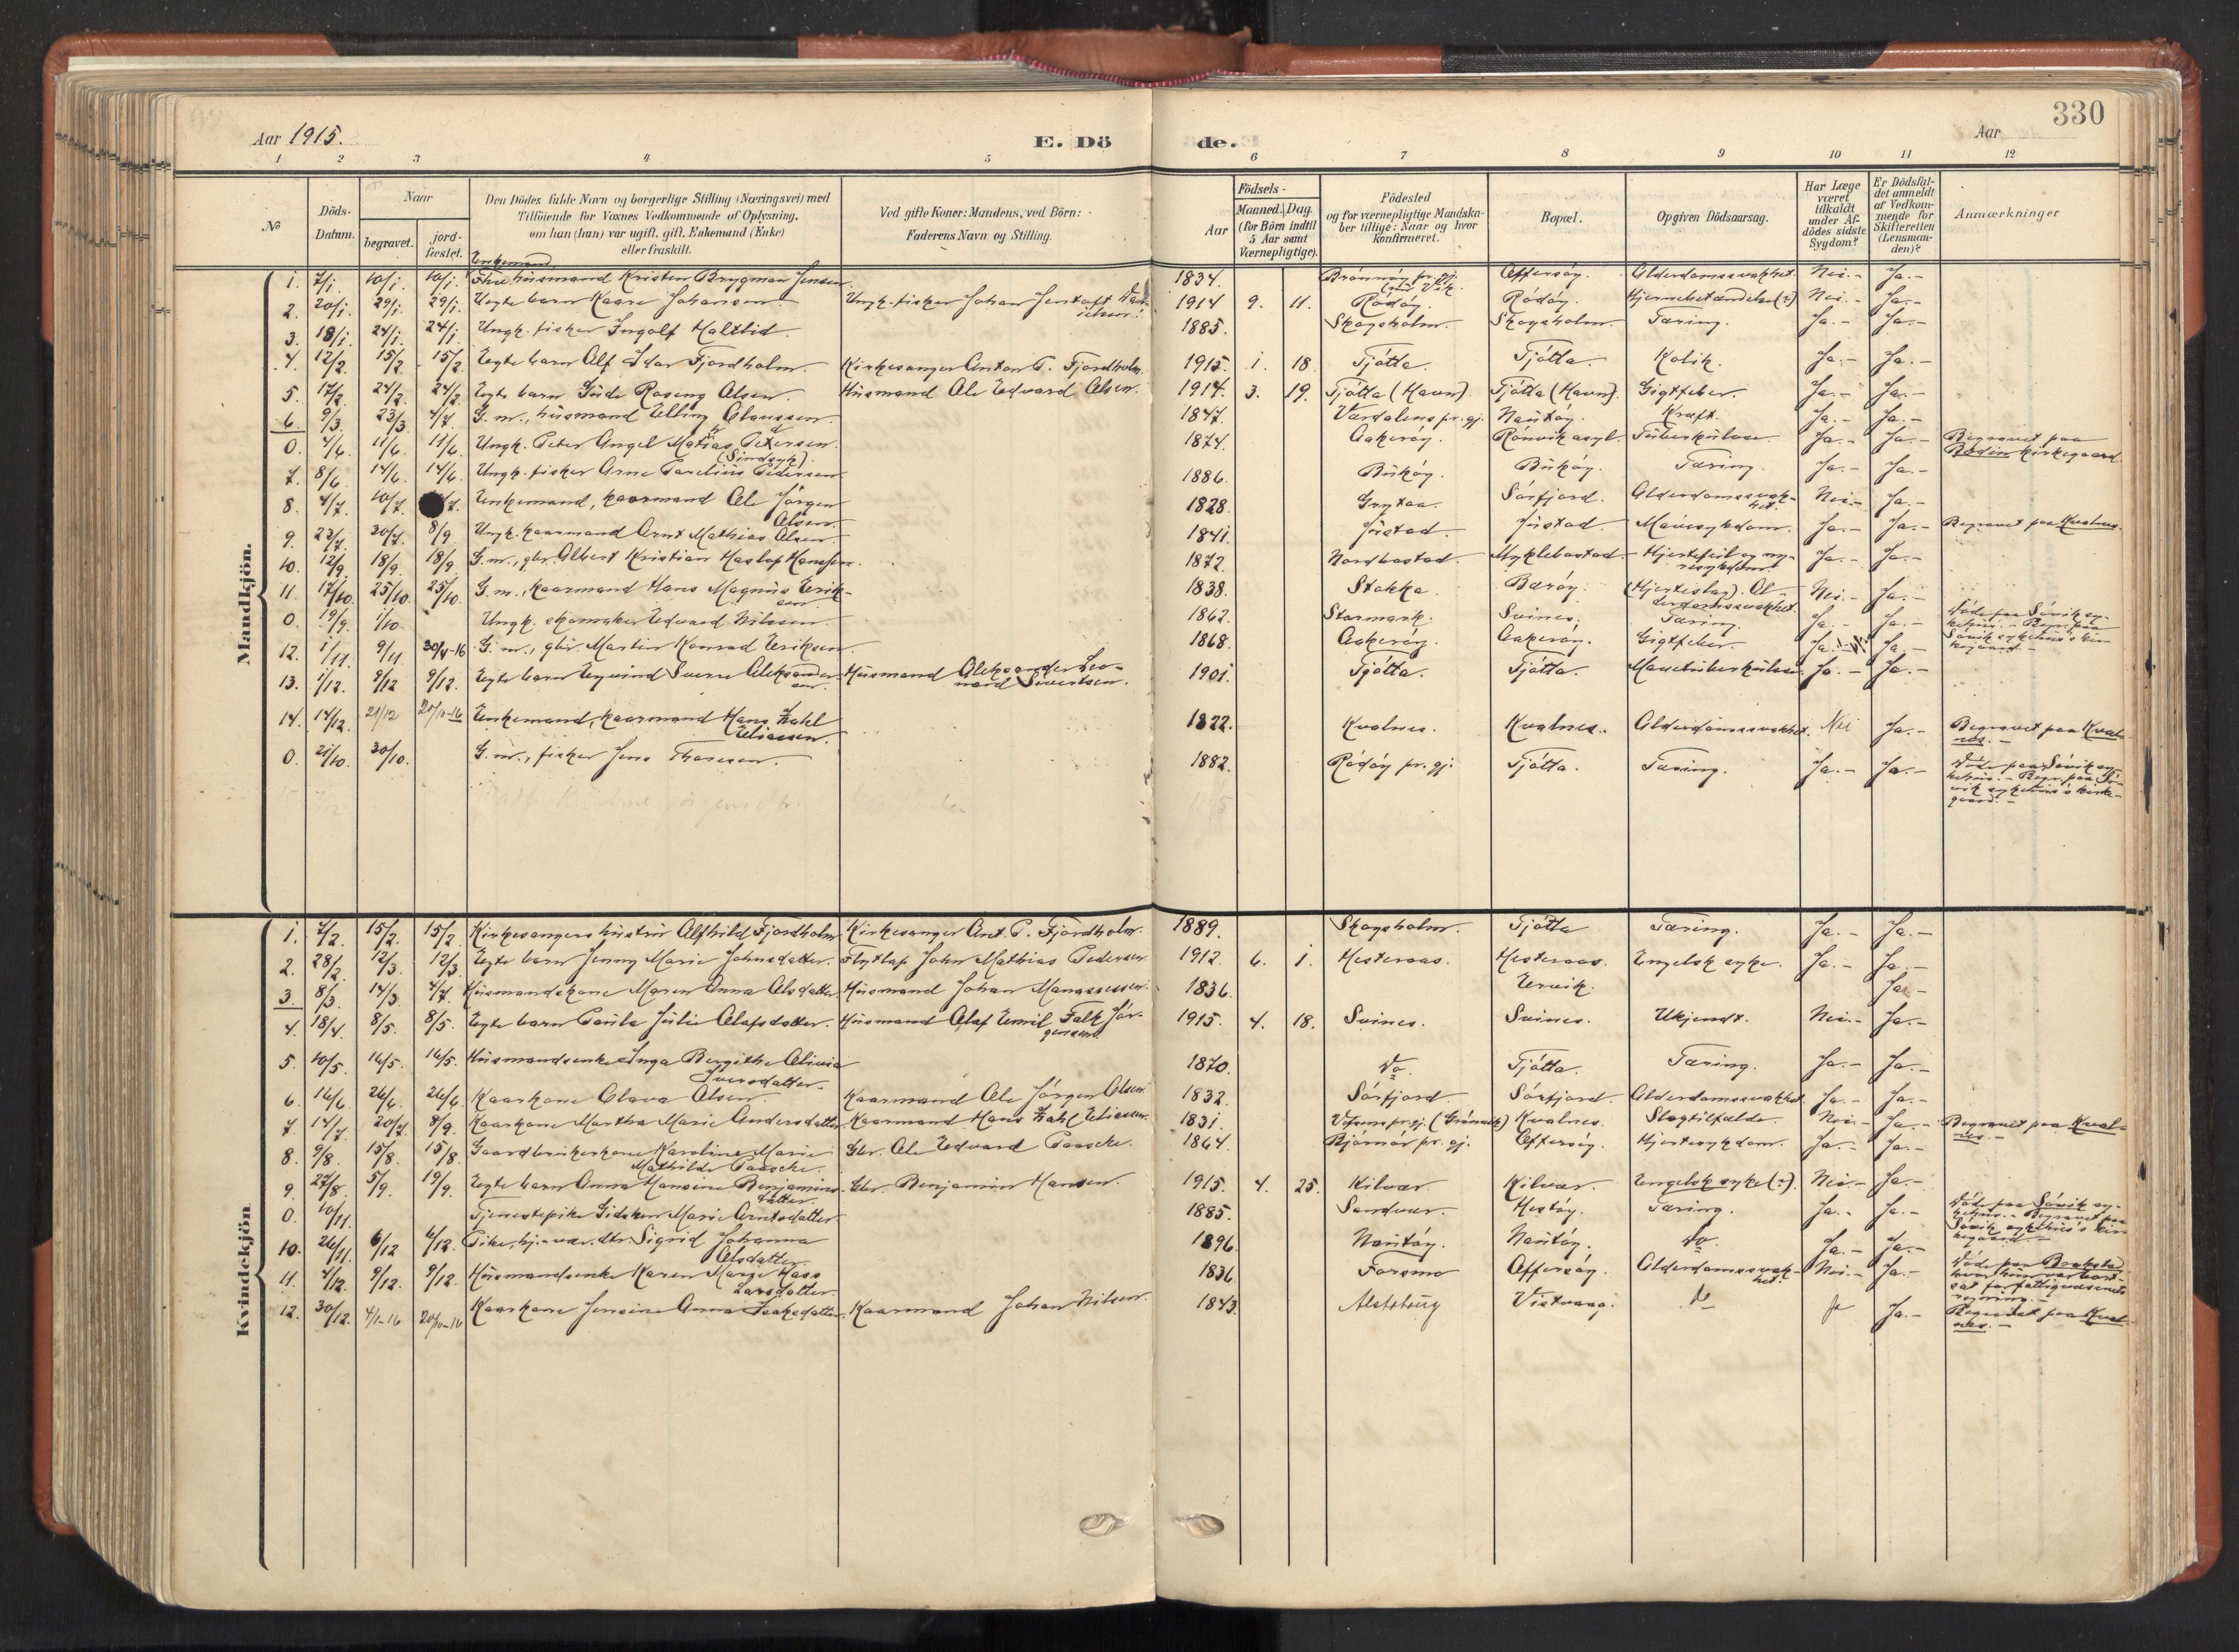 330
Aar 1915.
E. Dö de.
Aar
1 2 3 4 5 6 7 8 9 10 11 12
No
Döds-Datum.
Naar
begravet.
jord-fæstet.
Den Dödes fulde Navn og borgerlige Stilling (Næringsvei) med
Tilföiende for Voxnes Vedkommende af Oplysning,
om han (hun) var ugift, gift, Enkemand (Enke)
eller fraskilt.
Ved gifte Koner: Mandens, ved Börn:
Faderens Navn og Stilling.
Födsels-
Aar
Maaned. Dag.
(for Börn indtil
5 Aar samt
Værnepligtige).
Födested
og for værnepligtige Mandska-
ber tillige: Naar og hvor
konfirmeret.
Bopæl.
Opgiven Dödsaarsag.
Har Læge
været
tilkaldt
under Af-
dödes sidste
Sygdom?
Er Dödsfal-
det anmeldt
af Vedkom-
mende for
Skifteretten
(Lensman-
den)?
Anmærkninger
Mandkjön.
Enkemand
1. 7/1. 10/1. 10/1. Fhv. husmand Kristen Brygman Jensen 1834. Brönnöy pr.gj. Offersöy. Alderdomssvakhet. Nei.- Ja.-
2. 20/1. 29/1. 29/1. Uegte barn Kaare Johansen. Ungk. fisker Johan Jentoft Dan-ielsen. 1914 9. 11. Rödöy. Rödöy. Hjernebetændelse(?) Nei.- Ja.-
3. 18/1. 24/1. 24/1. Ungk. fisker Ingolf Haltlid. 1885. Skogsholm. Skogsholm. Tæring. Ja.- Ja.-
4. 12/2. 15/2. 15/2. Egte barn Alf Idar Fjordholm. Kirkesanger Anton P. Fjordholm. 1915. 1. 18. Tjötta. Tjötta. Kolik. Ja.- Ja.-
5. 17/2. 24/2. 24/2. Egte barn Gude Roseng Olsen. Husmand Ole Edvard Olsen. 1914. 3. 19. Tjötta (Havn). Tjötta (Havn). Gigtfeber. Ja.- Ja.-
6. 9/3. 23/3. 4/7. G. m., husmand Elling Claussen. 1847. Værdalens pr.gj. Nautöy. Kræft. Ja.- Ja.-
0. 4/6. 11/6. 11/6. Ungk. Peter Angel Matias Petersen. (Sindsyk). 1874. Aakeröy. Rönvik asyl. Tuberkulose Ja.- Ja.- Begravet paa Bodin kirkegaard
7. 8/6. 14/6. 14/6. Ungk. fisker Arne Parelius Pedersen 1886. Buköy. Buköy. Tæring. Ja.- Ja.-
8. 4/7. 10/7. /7. Enkemand, kaarmand Ole Jörgen Olsen. 1828. Grytaa. Sörfjord. Alderdomssvak-het. Nei.- Ja.-
9. 23/7. 30/7. 8/9. Ungk. kaarmand Arnt Mathias Olsen. 1841. Justad. Justad. Mavesykdom. Ja.- Ja.- Begravet paa Kvalnes.
10. 12/9. 18/9. 18/9. G. m., gbr. Albert Kristian Hastap Hanssen. 1872. Nordbostad. Myklebostad. Hjertefeil og ny-resykdom. Ja.- Ja.-
11. 17/10. 25/10. 25/10. G. m., kaarmand Hans Magnus Erik-sen. 1838. Stokka. Bæröy. (Hjerteslag). Al-derdomssvakhet. Nei.- Ja.-
0. 19/9. 1/10. Ungk. skomaker Edvard Nilssen. 1862. Stormark. Svines. Tæring. Ja.- Ja.- Döde paa Sövik sy-kehus.- Begr. paa Sövik sykehus's kir-kegaard.-
12. 1/11. 9/11. 30/4-16 G. m., gbr. Martin Konrad Eriksen 1868. Aakeröy. Aakeröy. Gigtfeber. Ja.- Ja.-
13. 1/12. 9/12 9/12. Egte barn Eyvind Sverre Aleksander-sen. Husmand Aleksander Leo-nard Sivertsen. 1901. Tjötta. Tjötta. Mavetuberkulose Ja.- Ja.-
14. 14/12. 21/12 20/10-16 Enkemand, kaarmand Hans Zahl Eliassen. 1822. Kvalnes. Kvalnes. Alderdomssvakhet. Nei Ja.- Begravet paa Kval-nes.-
0. 21/10. 30/10. G. m., fisker Jens Thoresen. 1882. Rödöy pr.gj. Tjötta. Tæring. Ja.- Ja.- Döde paa Sövik sy-kehus.- Begr. paa Sö-vik sykehus's kirke-gaard.-
Kvindekjön
1. 7/2. 15/2. 15/2. Kirkesangers hustru Alfhild Fjordholm. Kirkesanger Ant. P. Fjordholm. 1889. Skogsholm. Tjötta Tæring. Ja.- Ja.-
2. 28/2. 12/3. 12/3. Egte barn Jenny Marie Johnsdatter. Flytlap John Mathias Pedersen 1912. 6. 1. Hesteraas. Hesteraas. Engelsk syke. Ja.- Ja.-
3. 8/3. 14/3. 4/7. Husmandskone Maren Anna Olsdatter. Husmand Johan Manassessen. 1836. Ervik. Ja.-
4. 18/4. 8/5. 8/5. Egte barn Paula Julie Olafsdatter. Husmand Olaf Emil Falk Jör-gensen. 1915. 4. 18. Svines. Svines. Ukjendt. Nei.- Ja.-
5. 10/5. 16/5. 16/5. Husmandsenke Inga Bergithe Olivia Iversdatter. 1870. Do. Tjötta. Tæring. Ja.- Ja.-
6. 16/6. 26/6. 26/6. Kaarkone Olava Olsen. Kaarmand Ole Jörgen Olsen. 1832. Sörfjord. Sörfjord. Alderdomssvakhet. Ja.- Ja.-
7 14/7. 20/7. 8/9. Kaarkone Martha Marie Andersdatter. Kaarmand Hans Zahl Eliassen. 1831. Vefsens pr.gj. Kvalnes. Slagtilfælde. Nei.- Ja.- Begravet paa Kval-nes.-
8. 9/8. 15/8. 15/8. Gaardbrukerkone Karoline Marie Mathilde Paasche. Gbr. Ole Edvard Paasche. 1864. Bjørnör pr.gj. Offersöy. Hjertesykdom. Ja.- Ja.-
9. 27/8. 5/9. 19/9. Egte barn Anna Hansine Benjamins-datter. Gbr. Benjamin Hansen. 1915. 4. 25. Kilvær. Kilvær. Engelsk syke(?). Nei.- Ja.-
0. 10/11. Tjenestepike Gidsken Marie Arntsdatter 1885. Sandvær. Hestöy. Tæring. Ja.- Ja.- Döde paa Sövik sy-kehus.- Begravet paa Sövik sykehus's kir-kegaard.-
10. 26/11. 6/12 6/12. Pike, hj.-vær. dtr. Sigrid Johanna Olsdatter. 1896. Nautöy. Nautöy. Do. Ja.- Ja.-
11. 4/12. 9/12. 9/12. Husmandsenke Karen Marge Hass Larsdatter. 1836. Forsmo Offersöy. Alderdomssvak-het. Nei.- Ja.- Döde paa
12. 30/12. 4/1-16 20/10-16 Kaarkone Jensine Anna Isaksdatter. Kaarmand Johan Nilsen. 1843. Alstahaug Vistvaag. Ja Ja.- Begravet paa Kval-nes.-